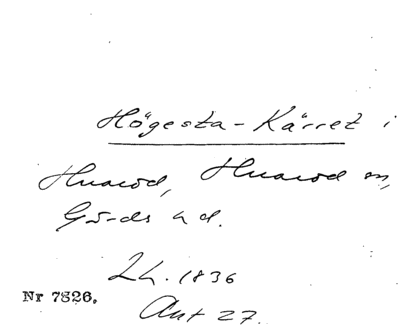 Högesta-Kärret i
Huaröd, Huaröd sn,
Gärds hd.
Lh. 1836
Nr 7826.
Akt 27.